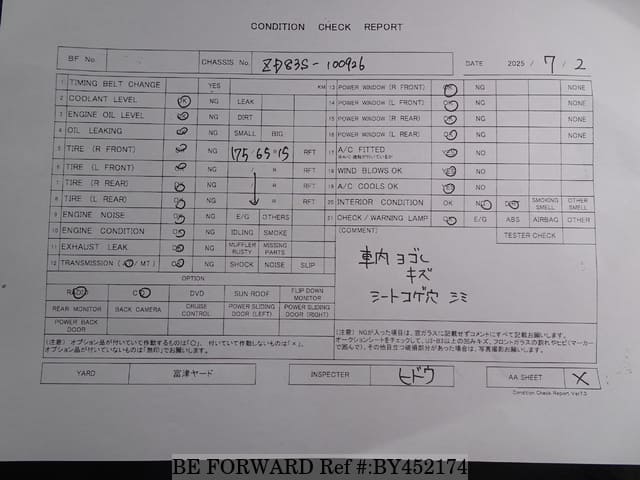 CONDITION CHECK REPORT
BF No. CHASSIS No. ZD83S-100926 DATE 2025 / 7 / 2
1 TIMING BELT CHANGE YES KM 13 POWER WINDOW (R FRONT) OK NG NONE
2 COOLANT LEVEL OK NG LEAK 14 POWER WINDOW (L FRONT) OK NG NONE
3 ENGINE OIL LEVEL OK NG DIRT 15 POWER WINDOW (R REAR) OK NG NONE
4 OIL LEAKING OK NG SMALL BIG 16 POWER WINDOW (L REAR) OK NG NONE
5 TIRE (R FRONT) OK NG 175/65R15 RFT 17 A/C FITTED YES NO
6 TIRE (L FRONT) OK NG / R RFT 18 WIND BLOWS OK YES NO
7 TIRE (R REAR) OK NG / R RFT 19 A/C COOLS OK YES NO
8 TIRE (L REAR) OK NG / R RFT 20 INTERIOR CONDITION OK NG DIRTY SMOKING SMELL OTHER SMELL
9 ENGINE NOISE OK NG E/G OTHERS 21 CHECK / WARNING LAMP OK E/G ABS AIRBAG OTHER
10 ENGINE CONDITION OK NG IDLING SMOKE (COMMENT) TESTER CHECK
11 EXHAUST LEAK OK NG MUFFLER RUSTY MISSING PARTS
12 TRANSMISSION (AT / MT) OK NG SHOCK NOISE SLIP
車内 ヨゴレ
キズ
シートコゲ穴 シミ
OPTION
RADIO CD DVD SUN ROOF FLIP DOWN MONITOR
REAR MONITOR BACK CAMERA CRUISE CONTROL POWER SLIDING DOOR (LEFT) POWER SLIDING DOOR (RIGHT)
POWER BACK DOOR
(注意) オプション品が付いていて作動するものは「○」、付いていて作動しないものは「×」、
オプション品が付いていないものは「無印」でお願いします。
(注意) NGが入った項目は、窓ガラスに記載せずコメントにすべて記載お願いします。
オークションシートをチェックして、U3・B3以上の凹みキズ、フロントガラスの割れやヒビ(マーカー
で囲んで)、その他目立つ破損部分があった場合は、写真撮影お願いします。
YARD 富津ヤード INSPECTER ヒドウ AA SHEET X
Condition Check Report Ver7.3
BE FORWARD Ref #:BY452174